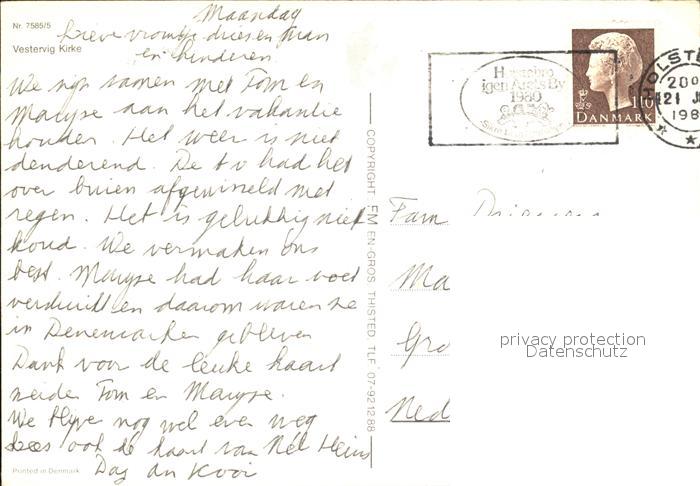 Maandag
Nr. 7585/5
Vestervig Kirke
Lieve vrouwtje dries en man
en kinderen
We zijn samen met Tom en
Maryse aan het vakantie
houden. Het weer is niet
denderend. De tv had het
over buien afgewisseld met
regen. Het is gelukkig niet
koud. We vermaken ons
best. Maryse had haar voet
verduikt en daarom waren ze
in Denemarken gebleven
Dank voor de leuke kaart
zeiden Tom en Maryse.
We blijve nog wel even weg
Lees ook de kaart van Nel Heins
Dag an Kooi
Printed in Denmark
COPYRIGHT FM EN-GROS THISTED TLF. 07-921288
igen Årets By
1980
110
DANMARK
HOLSTE
20
21 J
198
Fam
Ma
Gro
Ned
privacy protection
Datenschutz